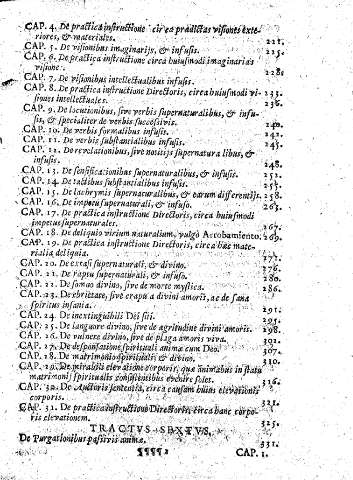 CAP. 4. De practica instructione circa prædictas visiones exte-
riores, & materiales. 221.
CAP. 5. De visionibus imaginarijs, & infusis. 225.
CAP. 6. De practica instructione circa huiusmodi imaginarias
visione. 228.
CAP. 7. De visionibus intellectualibus infusis.
CAP. 8. De practica instructione Directoris, circa huiusmodi vi-
siones intellectuales. 236.
CAP. 9. De locutionibus, sive verbis supernaturalibus, & infu-
sis, & specialiter de verbis successivis. 240.
CAP. 10. De verbis formalibus infusis. 242.
CAP. 11. De verbis substantialibus infusis. 245.
CAP. 12. De revelationibus, sive notitijs supernaturalibus, &
infusis. 248.
CAP. 13. De sensificationibus supernaturalibus, & infusis. 252.
CAP. 14. De tactibus substantialibus infusis. 255.
CAP. 15. De lachrymis supernaturalibus, & earum differentijs. 258.
CAP. 16. De impetu supernaturali, & infuso. 263.
CAP. 17. De practica instructione Directoris, circa huiusmodi
impetus supernaturales. 267.
CAP. 18. De deliquio virium naturalium, vulgò Arrobamiento. 269.
CAP. 19. De practica instructione Directoris, circa hæc mate-
rialia deliquia. 271.
CAP. 20. De extasi supernaturali, & divino. 276.
CAP. 21. De raptu supernaturali, & infuso. 280.
CAP. 22. De somno divino, sive de morte mystica. 286.
CAP. 23. De ebrietate, sive crapula divini amoris, ac de sana
spiritus insania. 291.
CAP. 24. De inextinguibili Dei siti. 295.
CAP. 25. De languore divino, sive de ægritudine divini amoris. 298.
CAP. 26. De vulnere divino, sive de plaga amoris viva. 302.
CAP. 27. De desponsatione spirituali animæ cum Deo. 307.
CAP. 28. De matrimonio spirituali, & divino. 310.
CAP. 29. De mirabili elevatione corporis, qua animabus in statu
matrimonij spiritualis consistentibus evenire solet. 316.
CAP. 30. De Auctoris sententia, circa causam huius elevationis
corporis. 321.
CAP. 31. De practica instructione Directoris, circa hanc corpo-
ris elevationem. 325.
TRACTVS SEXTVS,
De Purgationibus passivis animæ. 331.
¶¶¶¶2 CAP. 1.